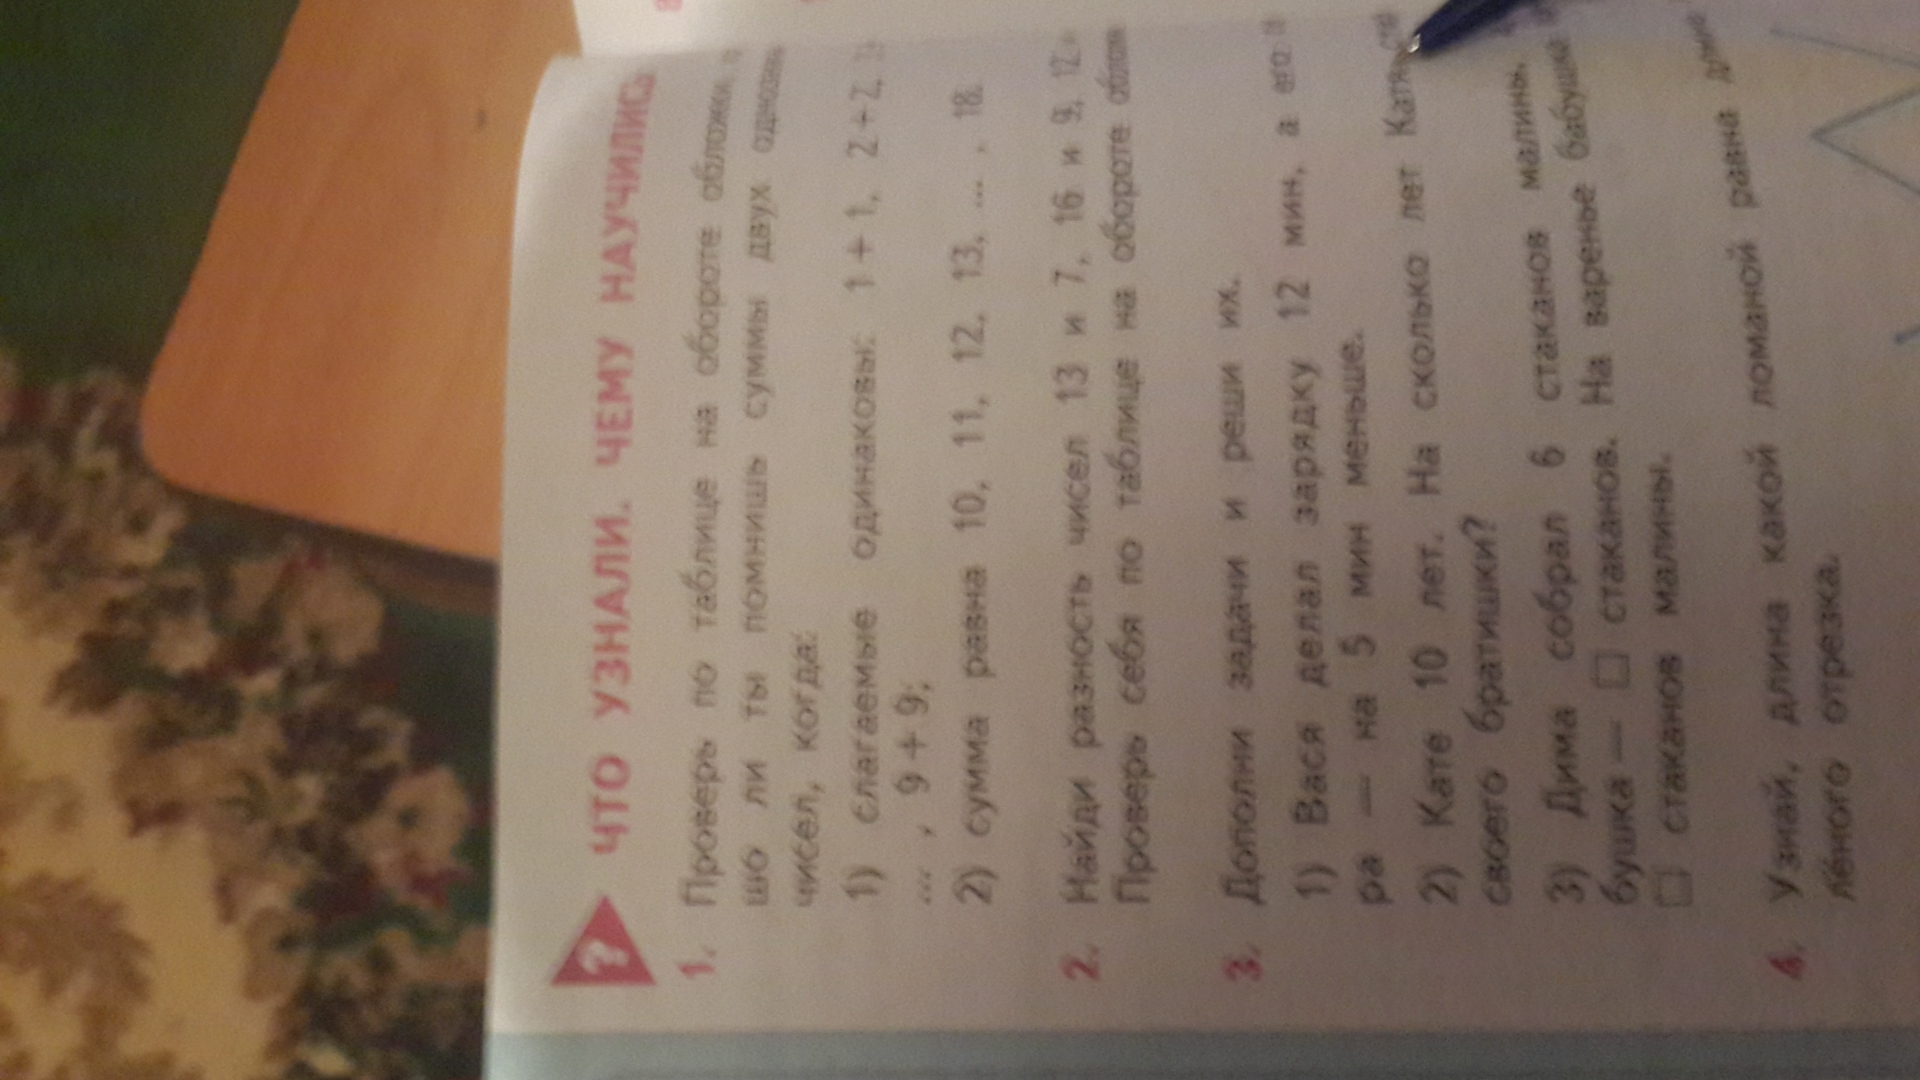 ЧТО УЗНАЛИ. ЧЕМУ НАУЧИЛИСЬ
1. Проверь по таблице на обороте обложки,
шо ли ты помнишь суммы двух
чисел, когда:
1) слагаемые одинаковы: 1 + 1, 2 + 2,
... , 9 + 9;
2) сумма равна 10, 11, 12, 13, ... , 18.
2. Найди разность чисел 13 и 7, 16 и 9, 12
Проверь себя по таблице на обороте
3. Дополни задачи и реши их.
1) Вася делал зарядку 12 мин, а его
ра — на 5 мин меньше.
2) Кате 10 лет. На сколько лет Катя
своего братишки?
3) Дима собрал 6 стаканов малины,
бушка — □ стаканов. На варенье бабушка
□ стаканов малины.
4. Узнай, длина какой ломаной равна
лёного отрезка.